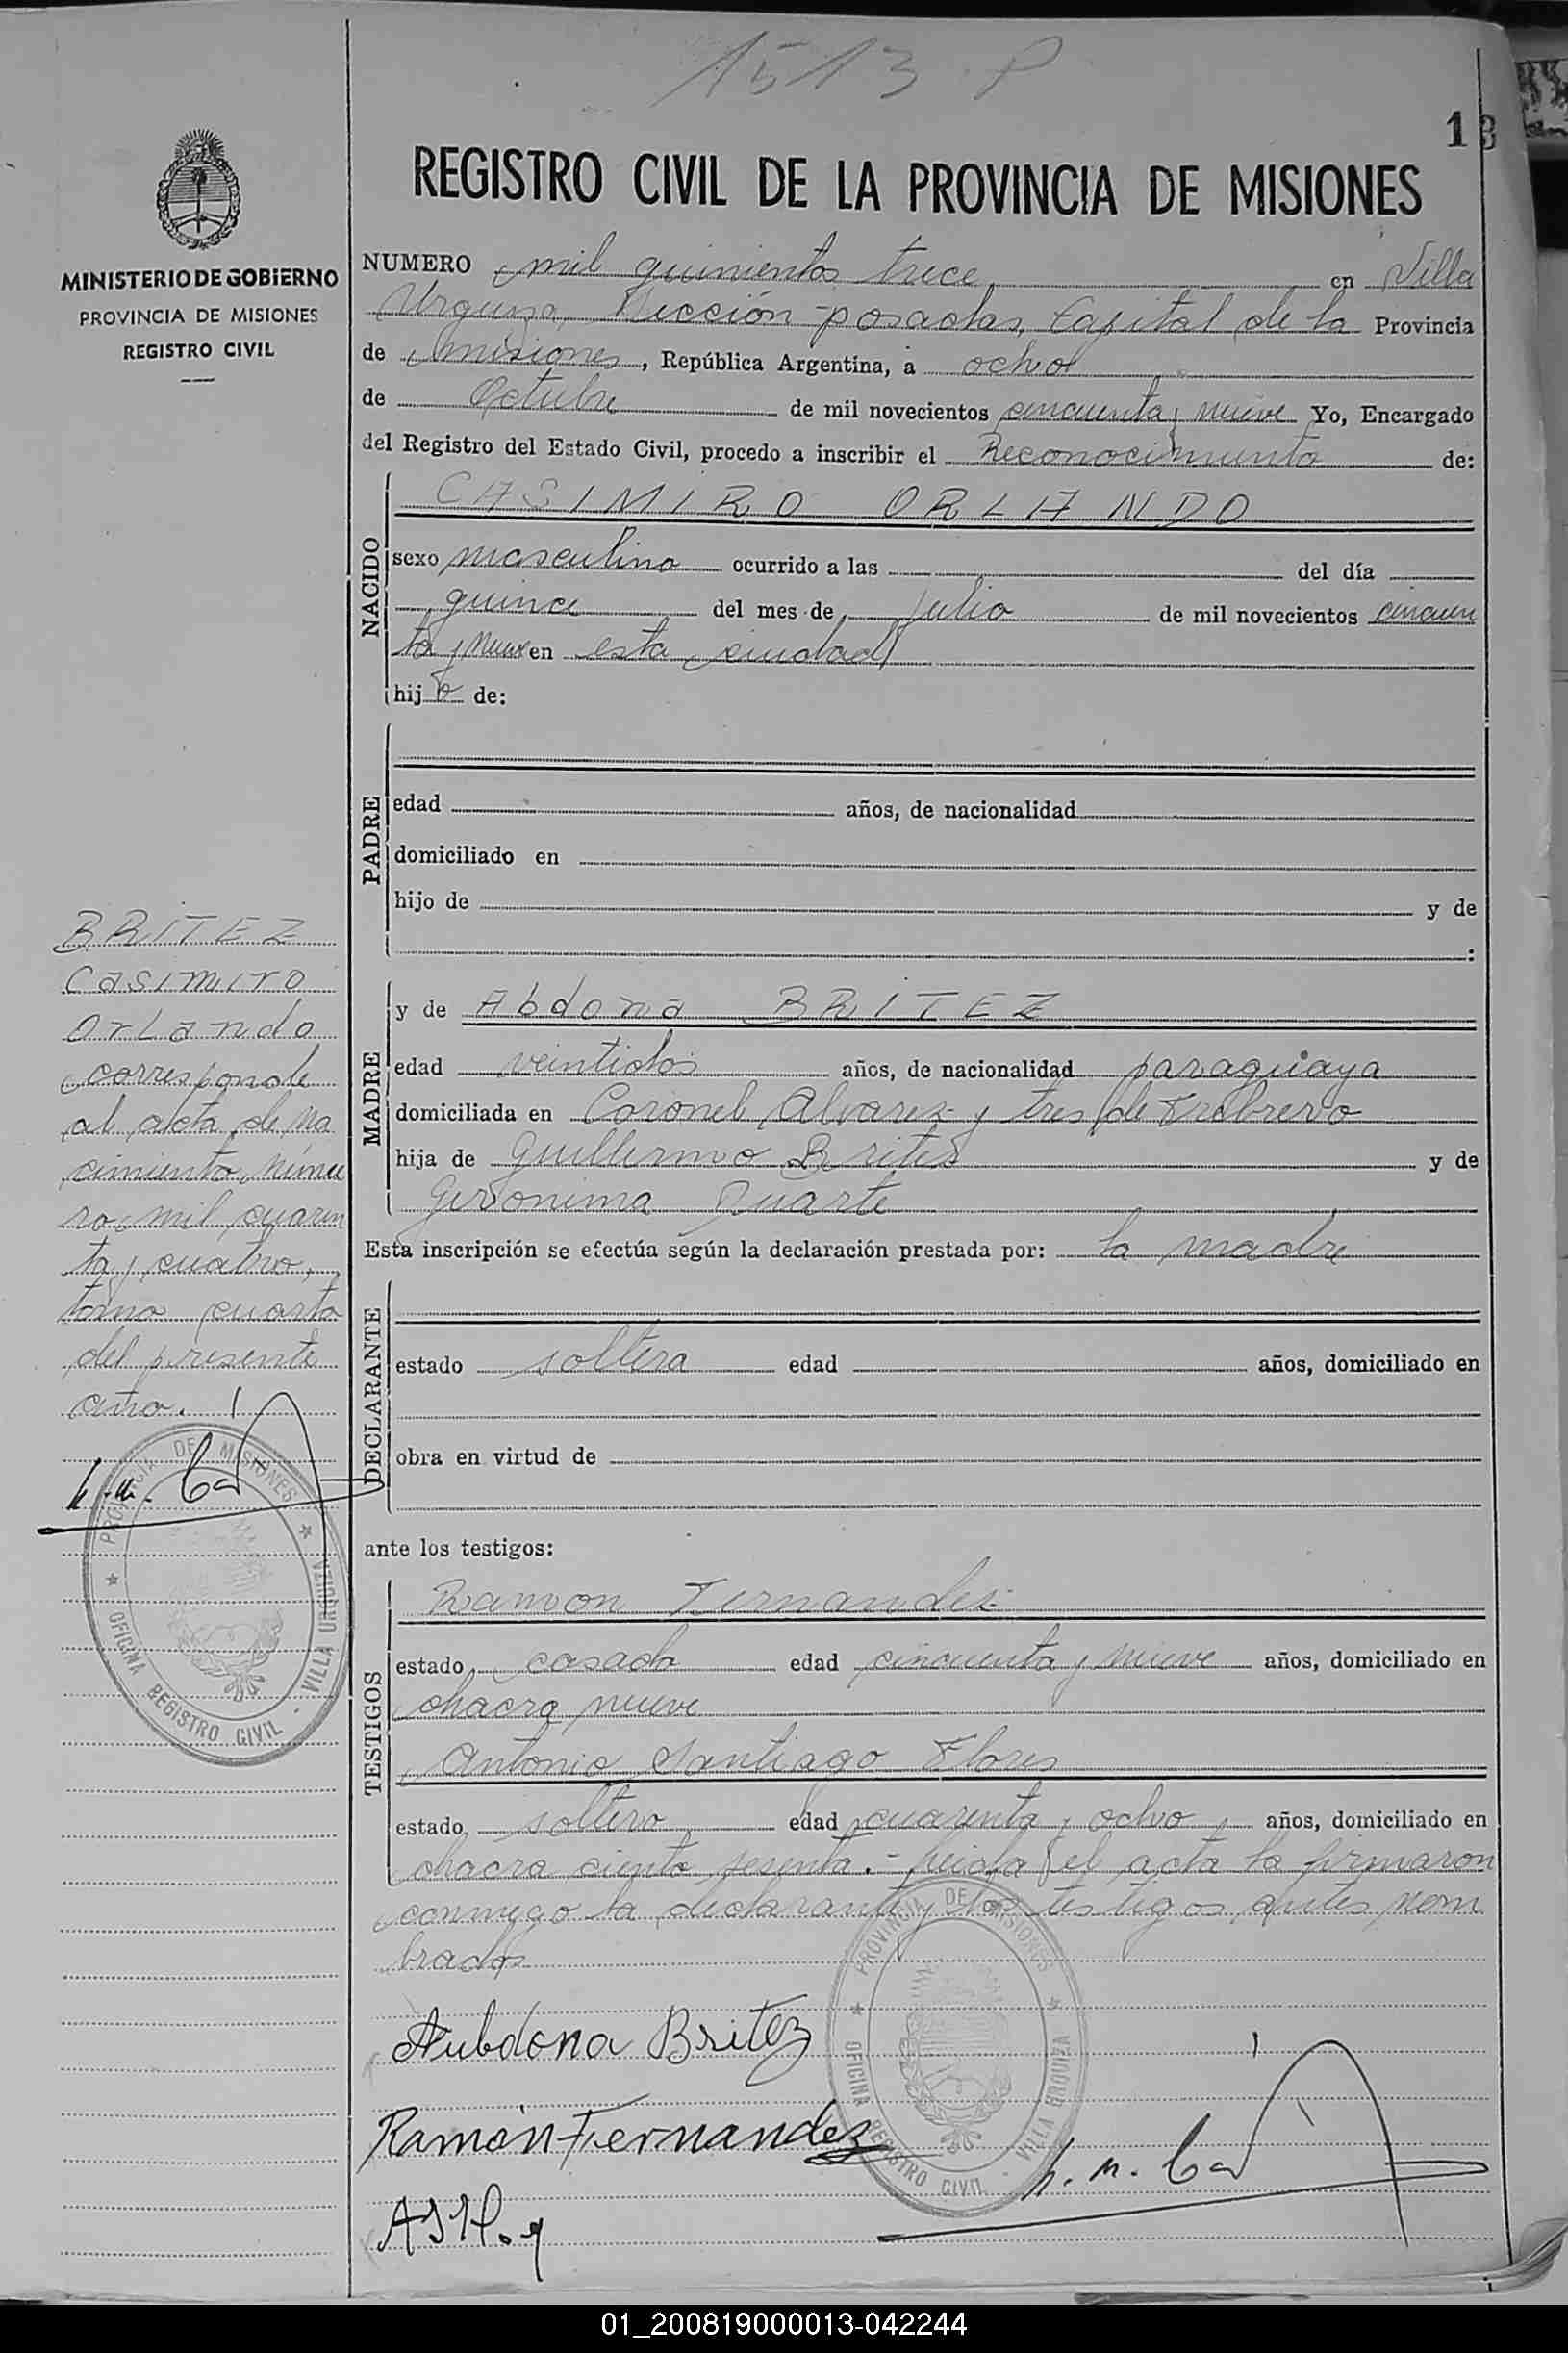 1513 P
13
REGISTRO CIVIL DE LA PROVINCIA DE MISIONES
MINISTERIO DE GOBIERNO
PROVINCIA DE MISIONES
REGISTRO CIVIL
NUMERO mil quinientos trece en Villa
Urquiza, Sección posadas, Capital de la Provincia
de misiones, República Argentina, a ocho
de Octubre de mil novecientos cincuenta y nueve Yo, Encargado
del Registro del Estado Civil, procedo a inscribir el Reconocimiento de:
NACIDO
CASIMIRO ORLANDO
sexo masculino ocurrido a las del día
quince del mes de julio de mil novecientos cincuen
ta y nueve en esta ciudad
hijo de:
PADRE
edad años, de nacionalidad
domiciliado en
hijo de y de
:
BRITEZ
Casimiro
Orlando
corresponde
al acta de na
cimiento núme
ro mil cuaren
ta y cuatro,
tomo cuarto
del presente
año.
MADRE
y de Abdona BRITEZ
edad veintidos años, de nacionalidad paraguaya
domiciliada en Coronel Alvarez y tres de Febrero
hija de Guillermo Brites y de
Geronima Duarte
Esta inscripción se efectúa según la declaración prestada por: la madre
DECLARANTE
estado soltera edad años, domiciliado en
obra en virtud de
ante los testigos:
TESTIGOS
Ramon Fernandez
estado casado edad cincuenta y nueve años, domiciliado en
chacra nueve
Antonio Santiago Flores
estado soltero edad cuarenta y ocho años, domiciliado en
chacra ciento sesenta.- Leida el acta la firmaron
conmigo la declarante y los testigos antes nom
brados
PROVINCIA DE MISIONES
OFICINA REGISTRO CIVIL - VILLA URQUIZA
PROVINCIA DE MISIONES
OFICINA REGISTRO CIVIL - VILLA URQUIZA
Aubdona Britez
Ramón Fernandez
01_200819000013-042244